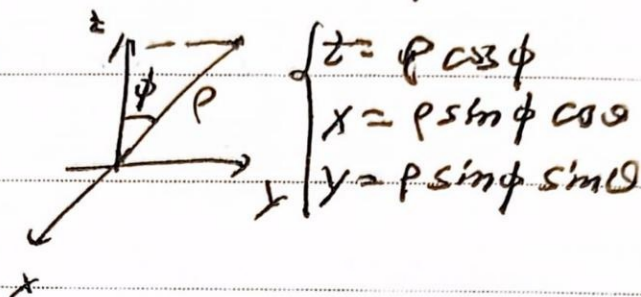 z
φ
ρ
y
x
z = ρ cos φ
x = ρ sin φ cos θ
y = ρ sin φ sin θ